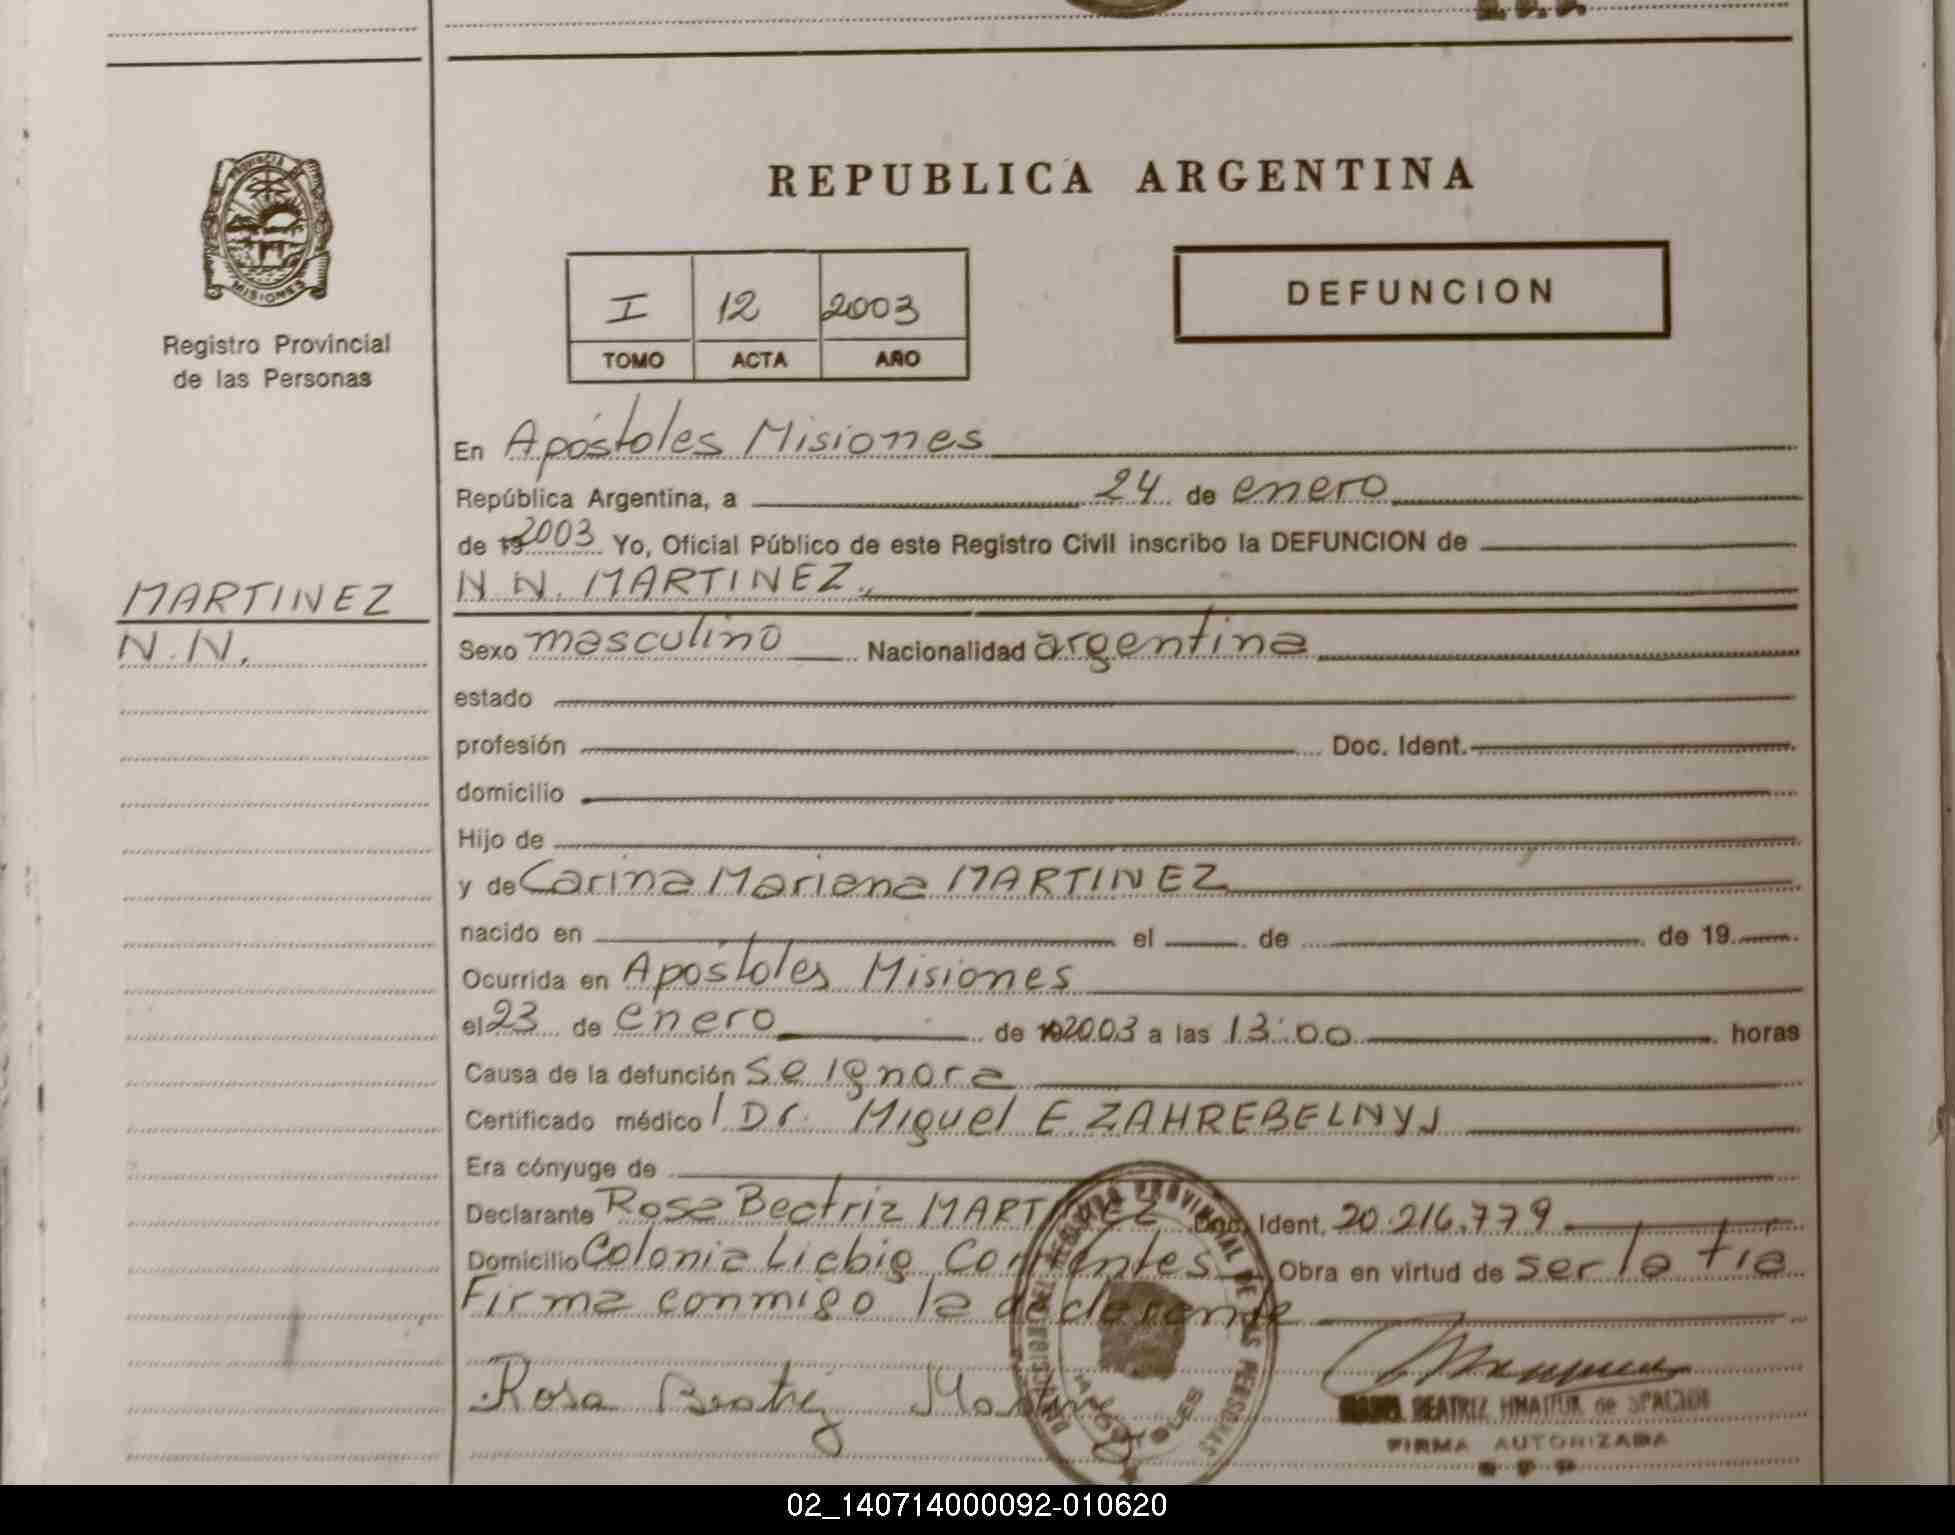 PROVINCIA
MISIONES
Registro Provincial
de las Personas
REPUBLICA ARGENTINA
I 12 2003
TOMO ACTA AÑO
DEFUNCION
En Apóstoles Misiones
República Argentina, a 24 de enero
de 19 2003 Yo, Oficial Público de este Registro Civil inscribo la DEFUNCION de
MARTINEZ
N.N.
N.N. MARTINEZ.
Sexo masculino Nacionalidad argentina
estado
profesión Doc. Ident.
domicilio
Hijo de
y de Carina Mariana MARTINEZ
nacido en el de de 19
Ocurrida en Apostoles Misiones
el 23 de enero de 19 2003 a las 13:00 horas
Causa de la defunción se ignora
Certificado médico Dr. Miguel E ZAHREBELNYJ
Era cónyuge de
Declarante Rosa Beatriz MARTINEZ Doc. Ident. 20.216.779
Domicilio Colonia Liebig Corrientes Obra en virtud de ser la tia
Firma conmigo la declarante
Rosa Beatriz
REGISTRO PROVINCIAL DE LAS PERSONAS
APOSTOLES
BEATRIZ de
FIRMA AUTORIZADA
02_140714000092-010620